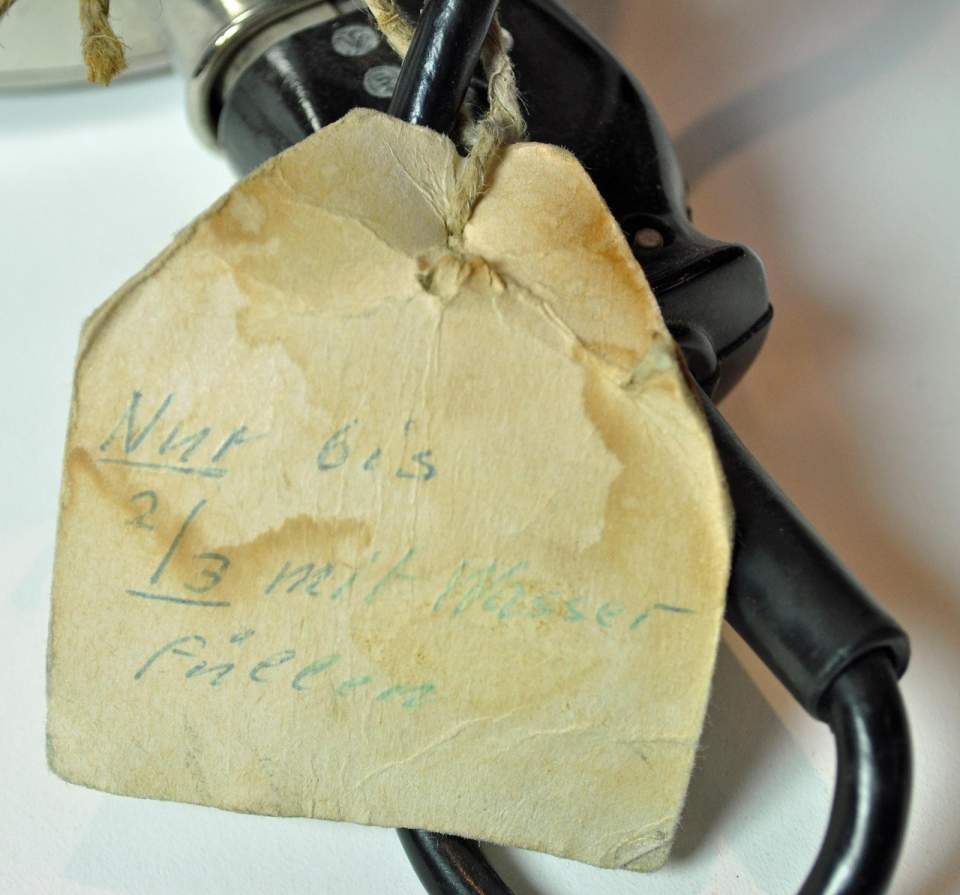 Nur bis
2/3 mit Wasser
füllen